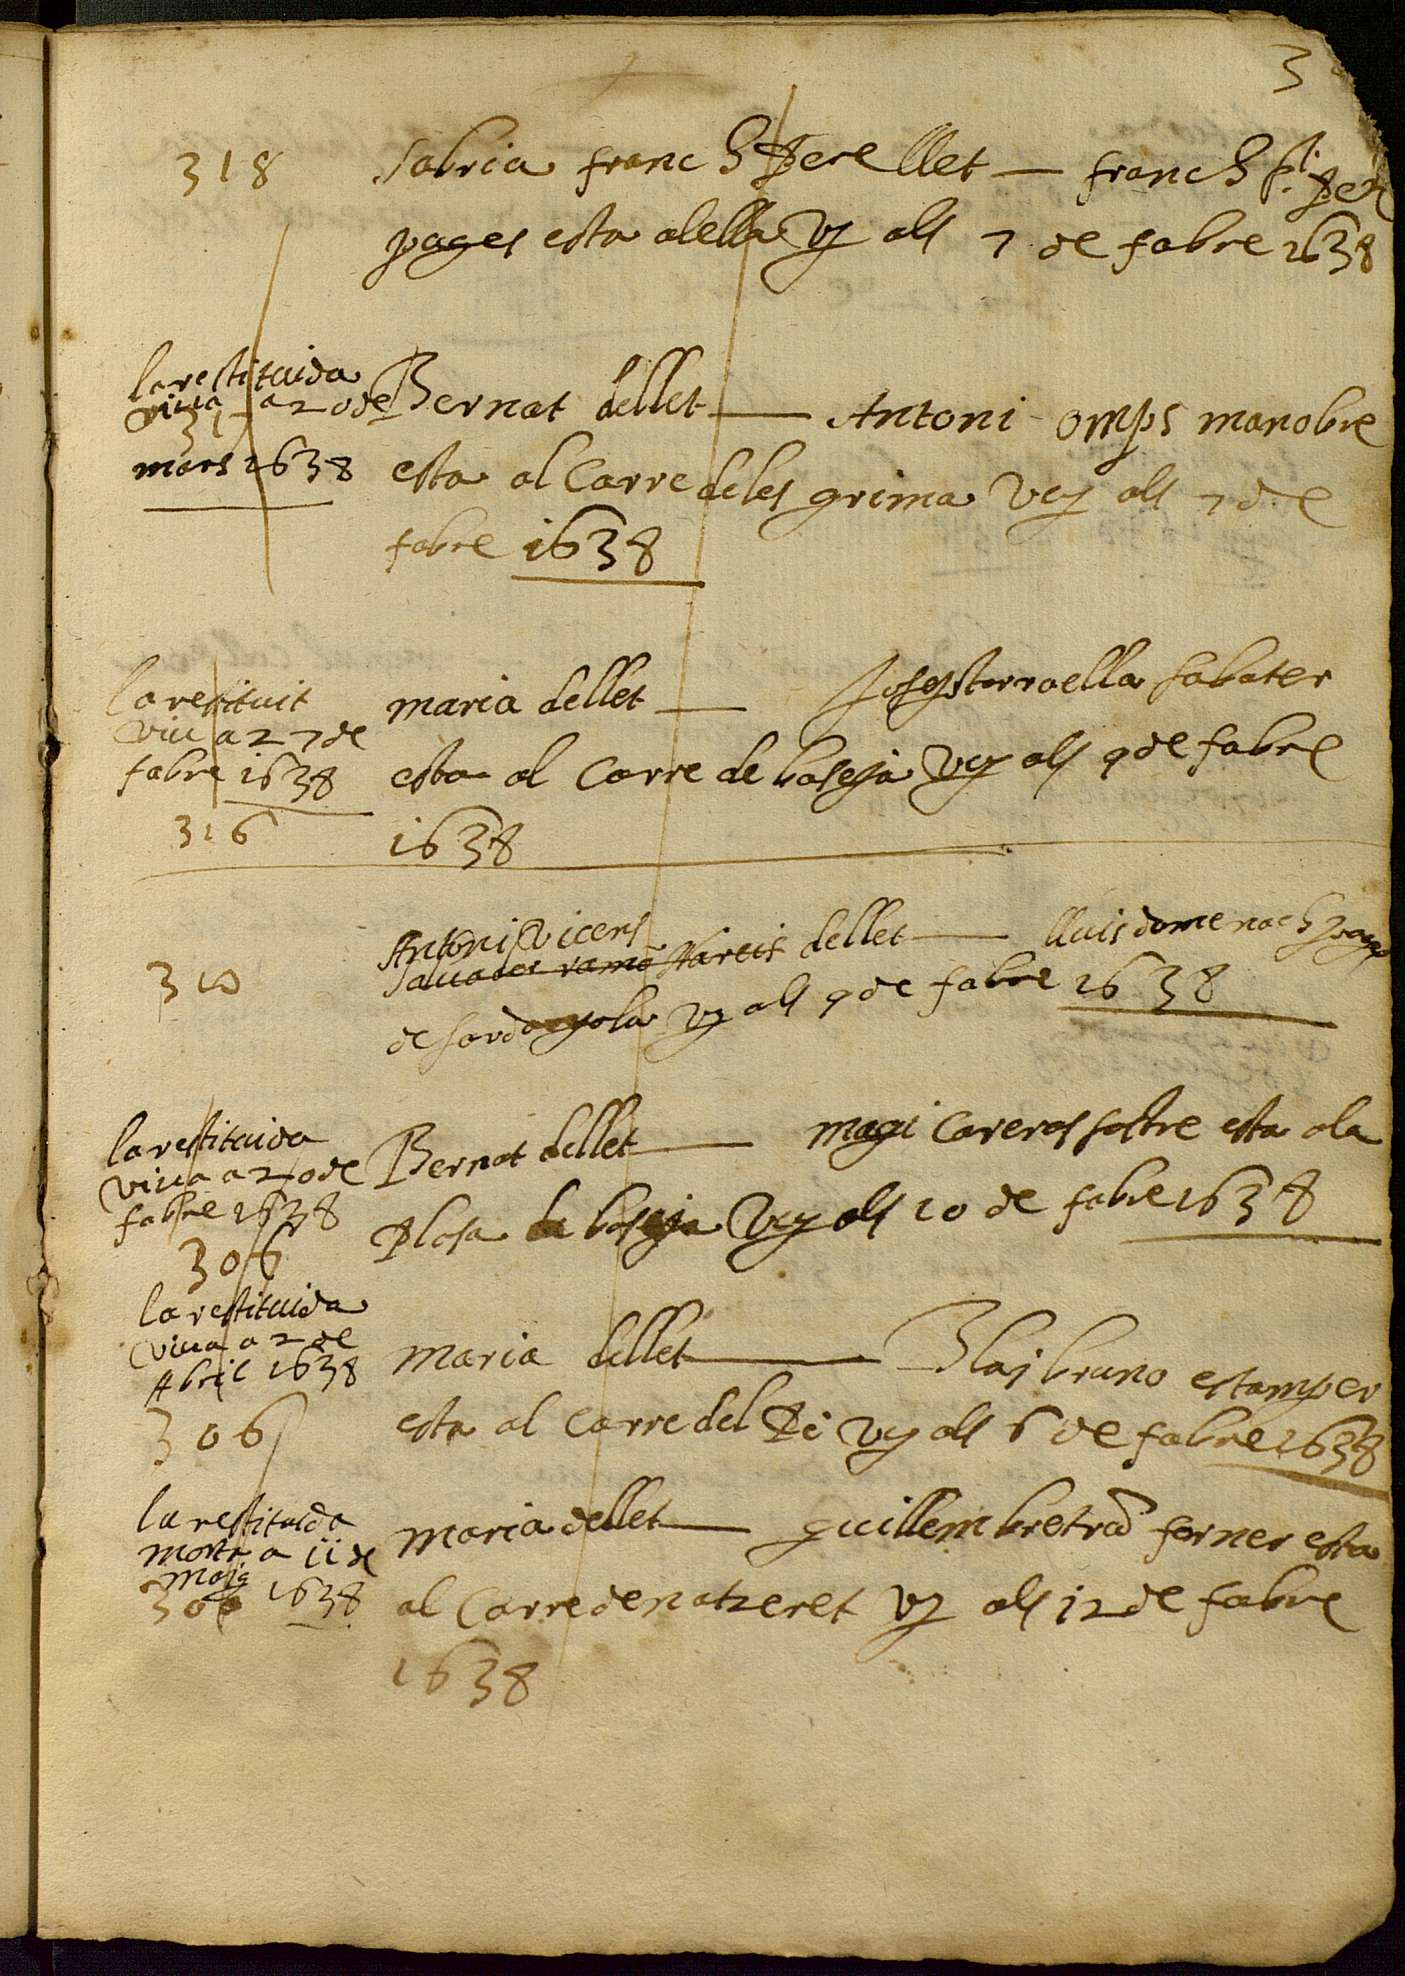 3
318
Sabria franch Pere llet — franch
pages esta alella vy als 7 de fabre 1638
la restituida
viua a 20 de
mars 1638
Bernat dellet — Antoni omps manobre
esta al Carre deles grima vuy als 7 de
fabre 1638
la restituit
viu a 27 de
fabre 1638
316
maria dellet — Josep torroella sabater
esta al Carre de baseja vuy als 9 de fabre
1638
310
Antoni Vicens
Saluador ramō Narcis dellet — lluis domenach
de sardanyola vy als 9 de fabre 1638
la restituida
viua a 20 de
fabre 1638
306
Bernat dellet — magi Careras sastre esta ala
Plasa de baseja vuy als 10 de fabre 1638
la restituida
viua a 2 de
Abril 1638
306
maria dellet — Blaj bruno estamper
esta al Carre del Pi vy als 6 de fabre 1638
la restituida
morta a 11 de
maig 1638
300
maria dellet — guillem bretrā forner esta
al Carre de natzeret vy als 12 de fabre
1638